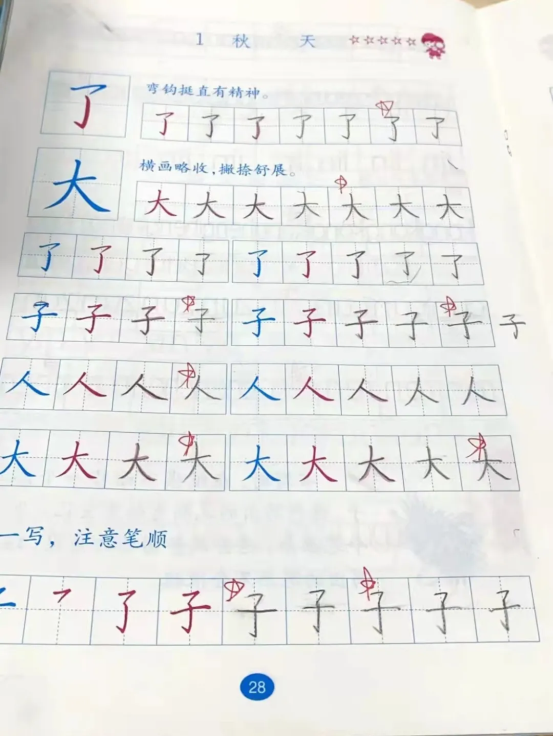 1 秋 天 ☆☆☆☆☆
弯钩挺直有精神。
了 了 了 了 了 了 了 了
横画略收，撇捺舒展。
大 大 大 大 大 大 大 大
了 了 了 了 了 了 了 了 了
子 子 子 子 子 子 子 子 子 子
人 人 人 人 人 人 人 人 人
大 大 大 大 大 大 大 大 大
一写，注意笔顺
㇇ 了 子 子 子 子 子 子
28